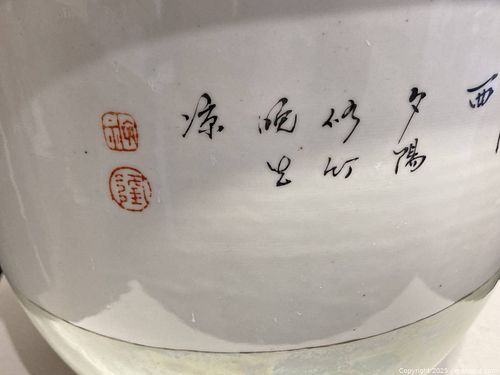 西
夕陽
修竹
晚生
凉
Copyright 2025